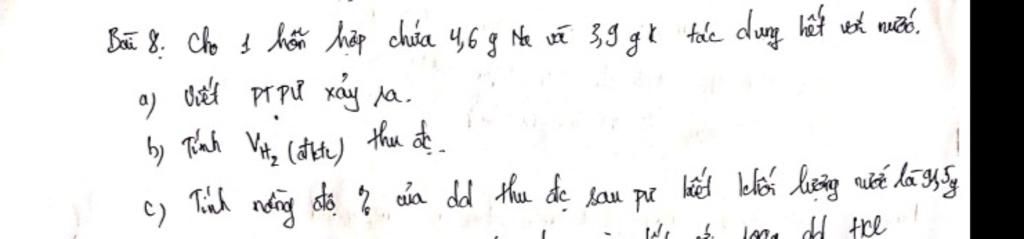 Bài 8. Cho 1 hỗn hợp chứa 4,6 g Na và 3,9 g K tác dụng hết với nước.
a) Viết PTPƯ xảy ra.
b) Tính V H₂ (đktc) thu đc.
c) Tính nồng độ % của dd thu đc sau pư biết khối lượng nước là 91,5g
dd HCl